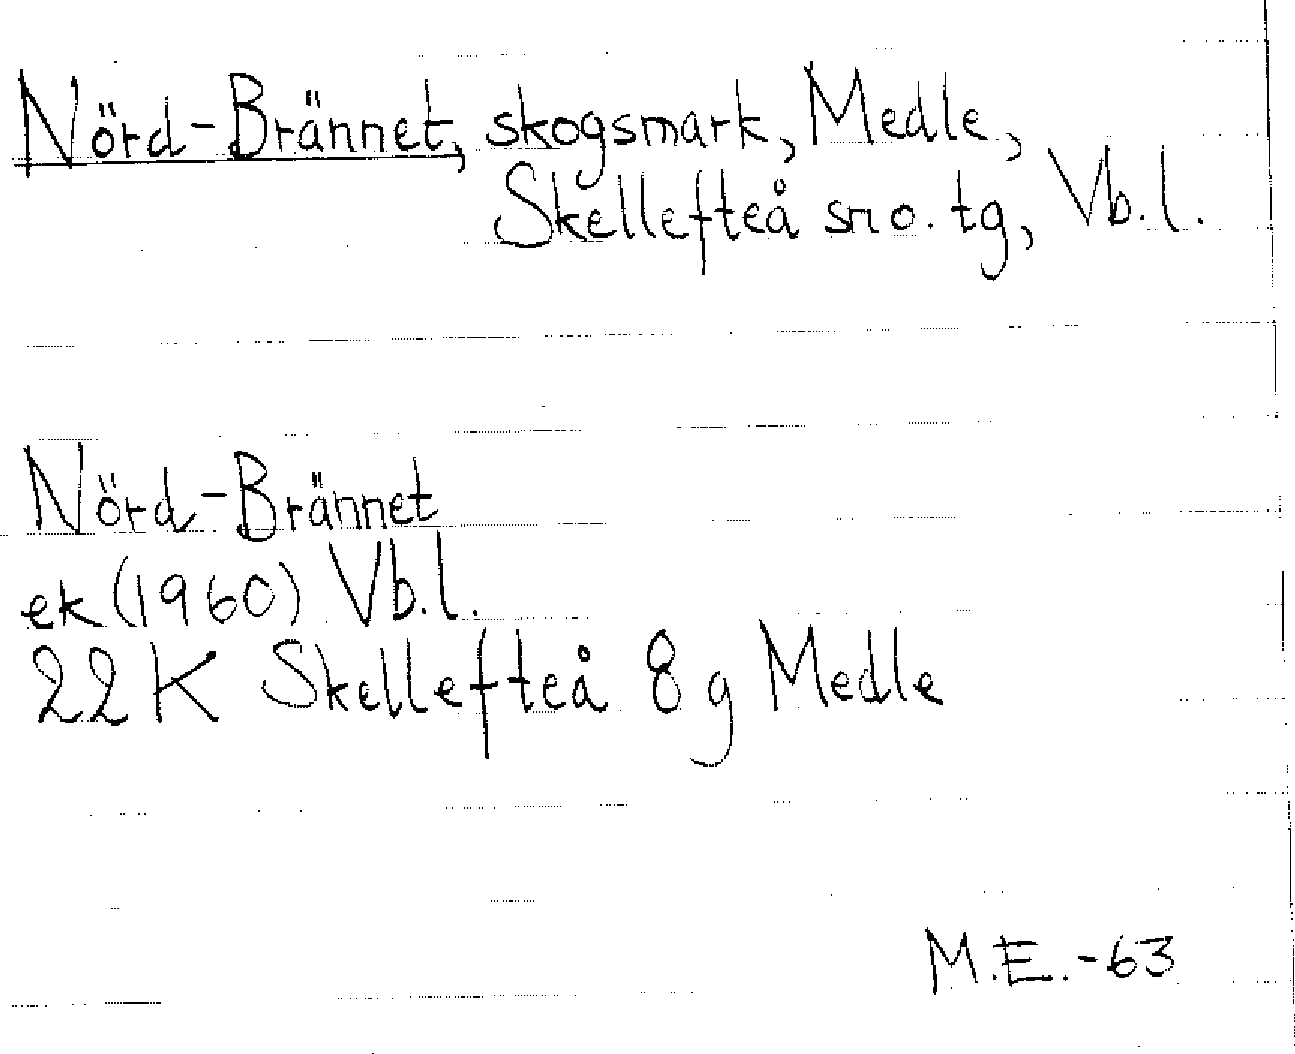 Nörd-Brännet, skogsmark, Medle,
Skellefteå sn o. tg, Vb.l.
Nörd-Brännet
ek (1960) Vb.l.
22 K Skellefteå 8 g Medle
M.E.-63